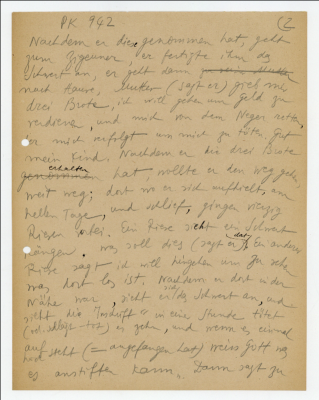 PK 942 (2
Nachdem er diese genommen hat, geht
zum Zigeuner, er fertigte ihm das
Schwert an, er geht dann
nach Hause, Mutter (sagt er) gieb mir
drei Brote, ich will gehen um Geld zu
verdienen, und mich von dem Neger retten,
er mich verfolgt um mich zu töten. Gut
mein Kind. Nachdem er die drei Brote
erhalten
genommen hat, wollte er den Weg gehen,
weit weg; dort wo er sich aufhielt, am
hellen Tage, und schlief, gingen vierzig
Riesen vorbei. Ein Riese sieht ein Schwert
hängen. was soll dies (sagt er). Ein anderer
Riese sagt ich will hingehen um zu sehen
was dort los ist. Nachdem er dort in der
Nähe war, sieht er das Schwert an, und
sieht die Inschrift "in eine Stunde tötet
(od. schlägt tot) es zehn, und wenn es einmal
aufsteht (= angefangen hat) weiss Gott was
es anstiften kann. Dann sagt zu